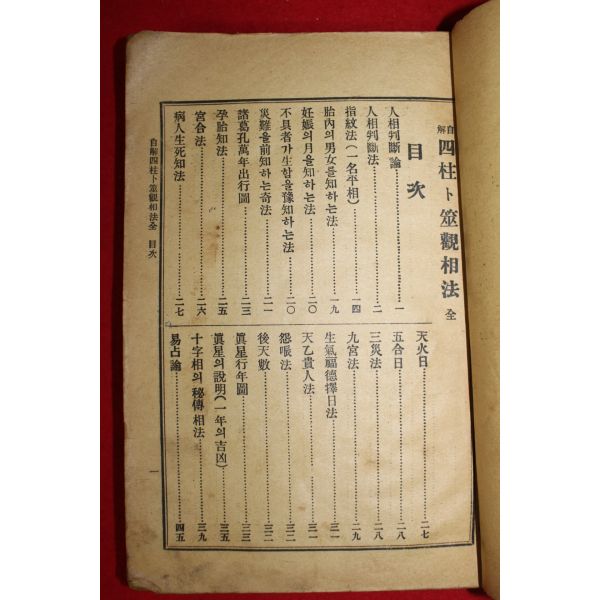 自解 四柱卜筮觀相法 全
目次
人相判斷論 一
人相判斷法 二
指紋法(一名平相) 一四
胎內의男女를知하는法 一九
妊娠의月을知하는法 二〇
不具者가生함을豫知하는法 二〇
災難을前知하는奇法 二一
諸葛孔萬年出行圖 二三
孕胎知法 二五
宮合法 二六
病人生死知法 二七
天火日 二七
五合日 二八
三災法 二八
九宮法 二九
生氣福德擇日法 三一
天乙貴人法 三一
怨嗔法 三二
後天數 三二
眞星行年圖 三三
眞星의說明(一年의吉凶) 三五
十字相의秘傳相法 三九
易占論 四五
自解四柱卜筮觀相法全 目次
一